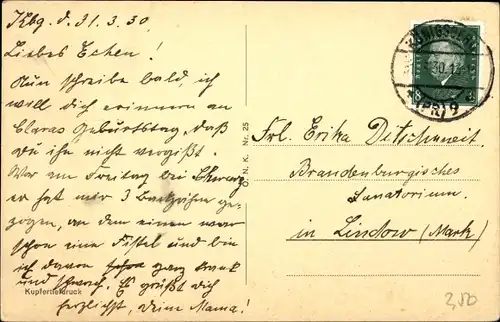 Kbg. d. 31.3.30
Liebes Echen!
Nun schreibe bald, ich
will dich erinnern an
Claras Geburtstag, daß
du ihn nicht vergißt.
War am Freitag bei
er hat mir 3 Backzähne ge-
zogen, an dem einen war
schon eine Fistel und bin
ich davon ganz krank
und schwach. Es grüßt dich
herzlichst, deine Mama!
Kupfertiefdruck
O. N. K. Nr. 25
KÖNIGSBERG
30.1
(PR) 9
Frl. Erika
Brandenburgisches
Sanatorium.
in Lindow (Mark)
2,50